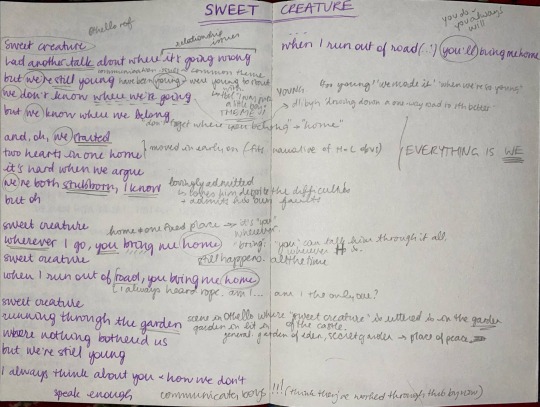 SWEET CREATURE
Othello ref
sweet creature
relationship issues
had another talk about where it's going wrong
communication issues
common theme
but we're still young
have been young + were young to start with
we don't know where we're going
THEME!!
but we know where we belong
don't forget where you belong → "home"
and, oh, we started
two hearts in one home
moved in early on (fits narrative of H+L obvs)
it's hard when we argue
we're both stubborn, I know
lovingly admitted
→ loves him despite the difficulties
+ admits his own faults
but oh
sweet creature
home ≠ one fixed place → it's "you" wherever.
wherever I go, you bring me home
'bring': "you" can talk him through it all, wherever
sweet creature
still happens all the time
when I run out of road, you bring me home
I always heard rope. am I... am I the only one?
sweet creature
running through the garden
scene in Othello where "sweet creature" is uttered is in the garden of the castle.
where nothing bothered us
garden in lit in general: garden of eden, secret garden → place of peace
but we're still young
I always think about you + how we don't
speak enough
communicate, boys !!! (think they've worked through this by now)
you do → you always will
when I run out of road (...) you'll bring me home
YOUNG:
"we made it" when we're so young"
EVERYTHING IS WE